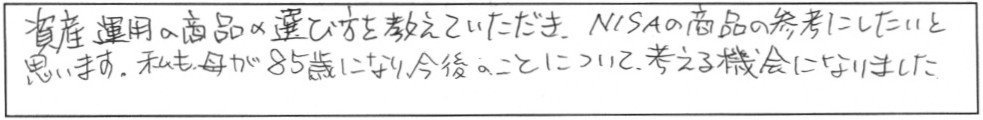 資産運用の商品の選び方を教えていただき、NISAの商品の参考にしたいと
思います。私も母が85歳になり、今後のことについて、考える機会になりました